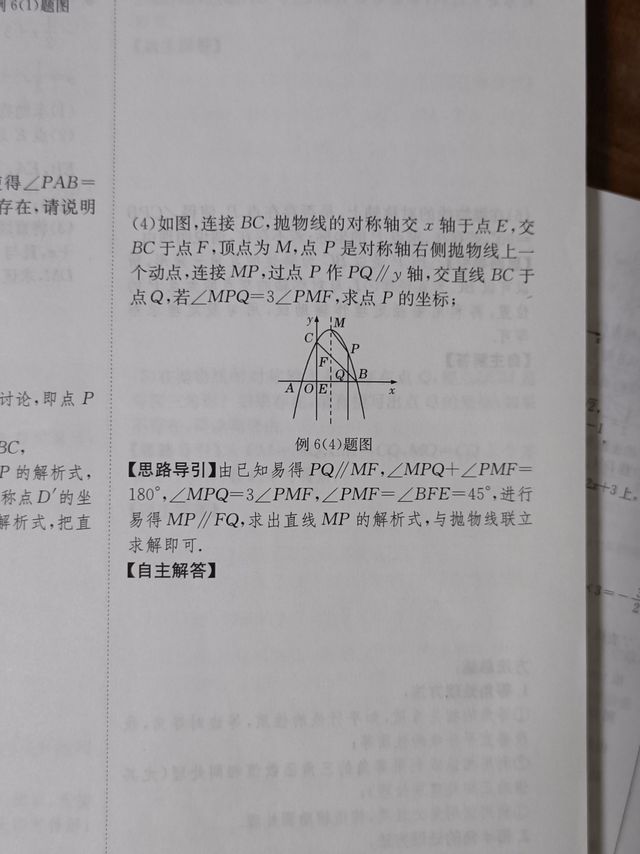 例 6(1)题图
使得∠PAB=
存在,请说明
讨论,即点 P
BC,
P 的解析式,
称点 D′的坐
解析式,把直
(4)如图,连接 BC,抛物线的对称轴交 x 轴于点 E,交
BC 于点 F,顶点为 M,点 P 是对称轴右侧抛物线上一
个动点,连接 MP,过点 P 作 PQ∥y 轴,交直线 BC 于
点 Q,若∠MPQ=3∠PMF,求点 P 的坐标;
y M
C
P
F
Q B
A O E x
例 6(4)题图
【思路导引】由已知易得 PQ∥MF,∠MPQ+∠PMF=
180°,∠MPQ=3∠PMF,∠PMF=∠BFE=45°,进行
易得 MP∥FQ,求出直线 MP 的解析式,与抛物线联立
求解即可.
【自主解答】
2x+3上,